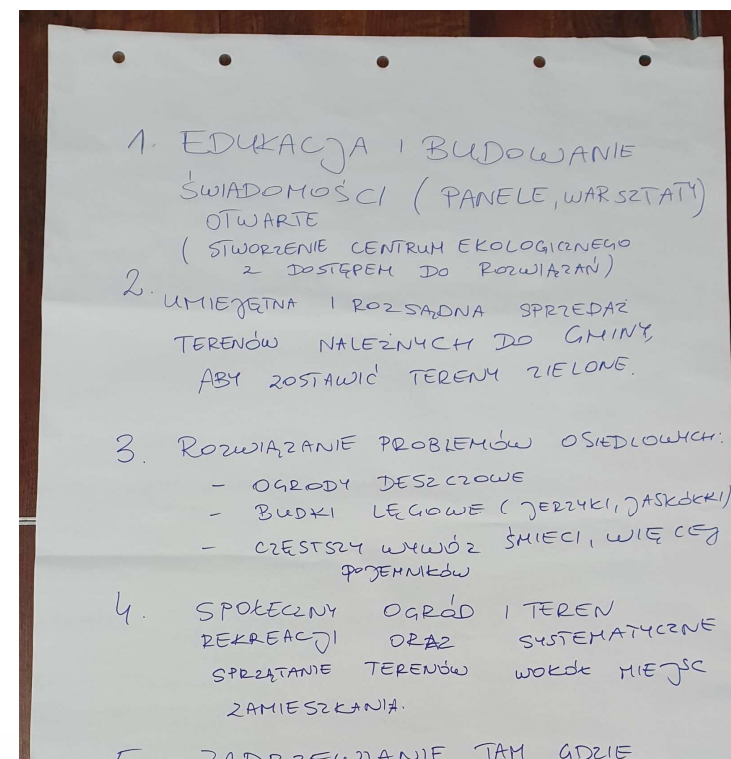 1. EDUKACJA I BUDOWANIE
ŚWIADOMOŚCI ( PANELE, WARSZTATY)
OTWARTE
( STWORZENIE CENTRUM EKOLOGICZNEGO
Z DOSTĘPEM DO ROZWIĄZAŃ)
2. UMIEJĘTNA I ROZSĄDNA SPRZEDAŻ
TERENÓW NALEŻNYCH DO GMINY,
ABY ZOSTAWIĆ TERENY ZIELONE.
3. ROZWIĄZANIE PROBLEMÓW OSIEDLOWYCH:
- OGRODY DESZCZOWE
- BUDKI LĘGOWE ( JERZYKI, JASKÓŁKI)
- CZĘSTSZY WYWÓZ ŚMIECI, WIĘCEJ
POJEMNIKÓW
4. SPOŁECZNY OGRÓD I TEREN
REKREACJI ORAZ SYSTEMATYCZNE
SPRZĄTANIE TERENÓW WOKÓŁ MIEJSC
ZAMIESZKANIA.
5. ZADRZEWIANIE TAM GDZIE